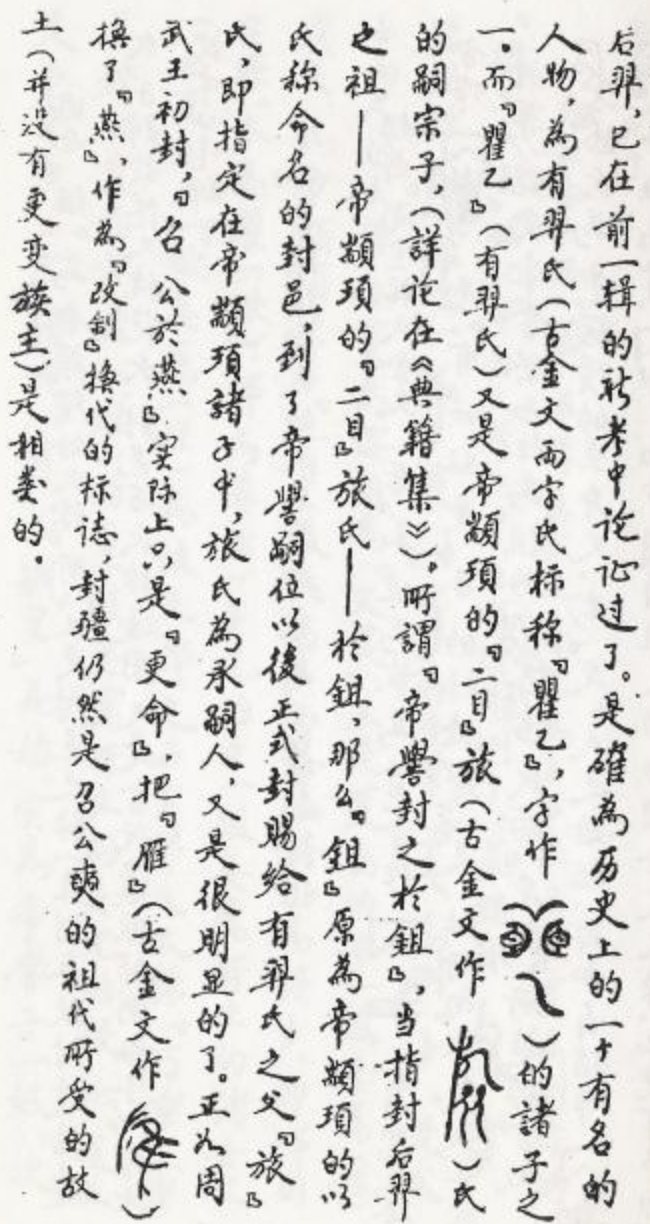 后羿，已在前一辑的新考中论证过了。是確為历史上的一个有名的
人物，為有羿氏（古金文两字氏标称『瞿乙』，字作）的諸子之
一。而『瞿乙』（有羿氏）又是帝顓頊的『二目』旅（古金文作）氏
的嗣宗子，（詳论在《典籍集》）。所謂『帝嚳封之於鉏』，当指封后羿
之祖——帝顓頊的『二目』旅氏——於鉏，那么『鉏』原為帝顓頊的以
氏称命名的封邑，到了帝嚳嗣位以後正式封賜给有羿氏之父『旅』
氏，即指定在帝顓頊諸子中，旅氏為承嗣人，又是很明显的了。正如周
武王初封，『召公於燕』，实际上只是『更命』，把『雁』（古金文作）
换了『燕』，作為『改制』换代的标志，封疆仍然是召公奭的祖代所受的故
土（并没有更变族主）是相类的。